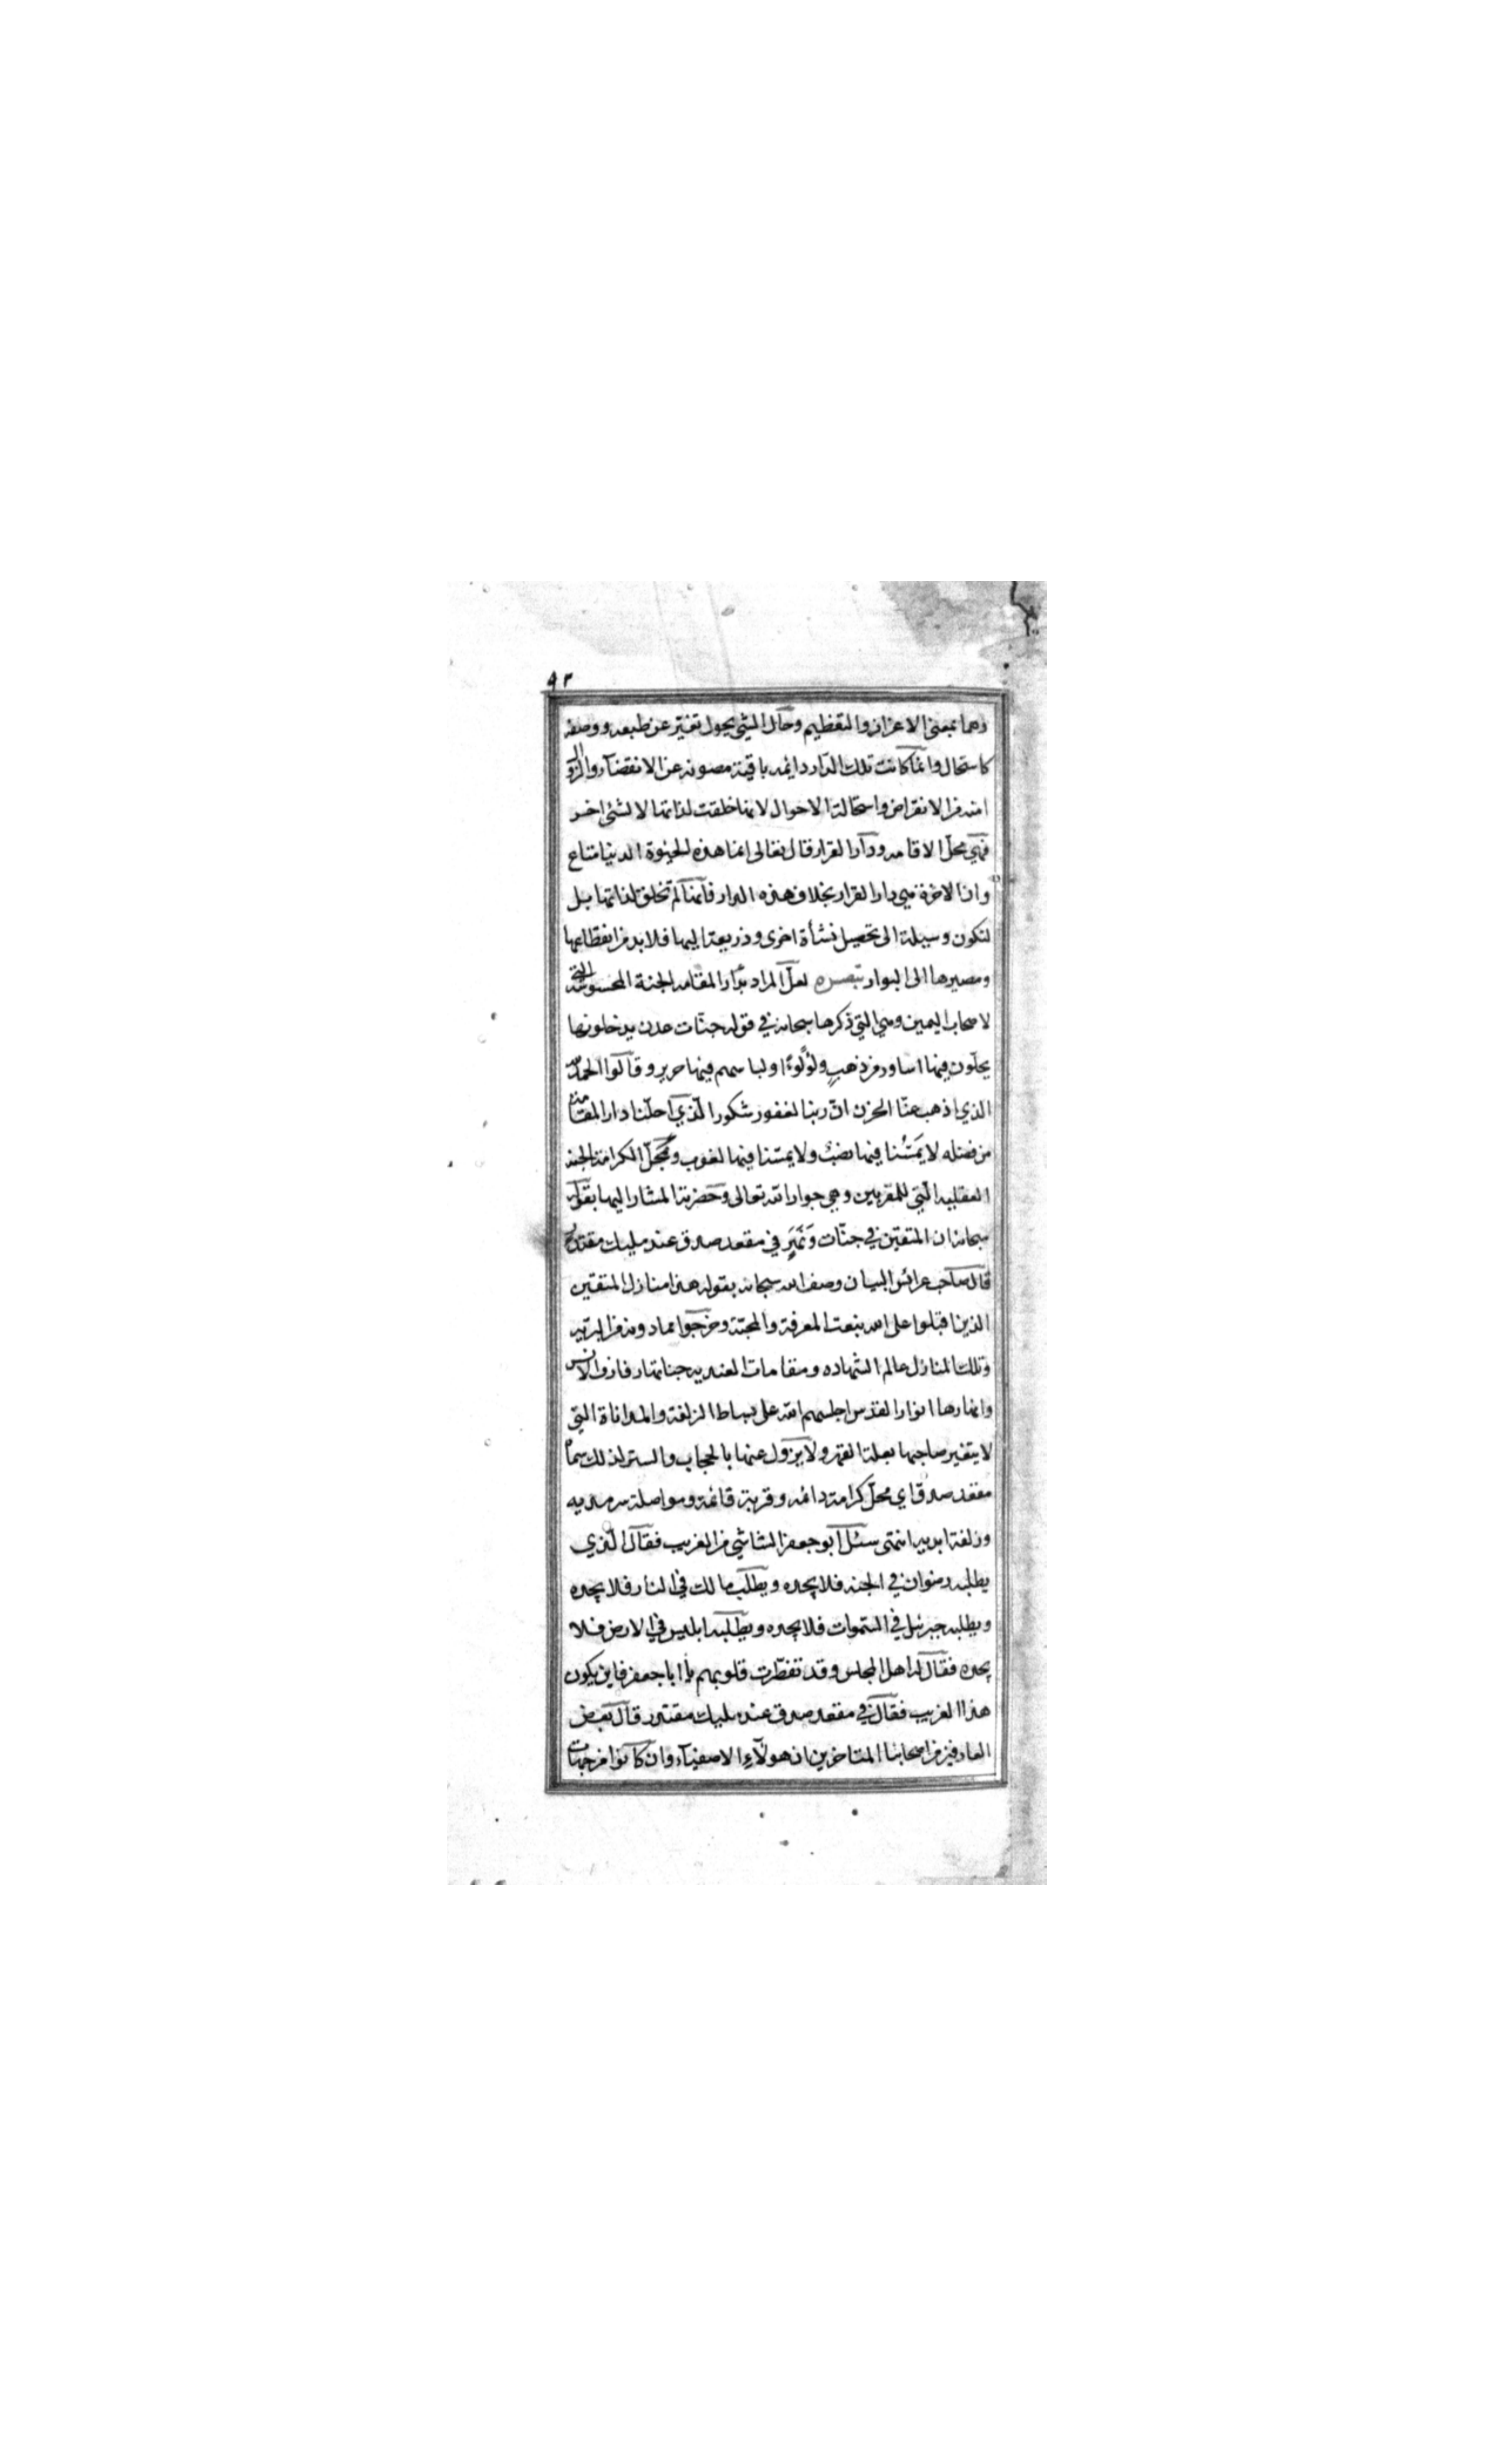 ٩٢
وهما بمعنى الاعزاز والتعظيم وحال الشيئ يحول تغيّر عن طبعه ووصفه
كاستحال وانما كانت تلك الدار دائمه باقية مصونه عن الانقضاء والزوال
امنه من الانقراض واستحالة الاحوال لانها خلقت لذاتها لا لشئ اخر
فهي محلّ الاقامه ودار القرار قال تعالى انما هذه الحيوة الدنيا متاع
وان الاخرة هي دار القرار بخلاف هذه الدار فانها لم تخلق لذاتها بل
لتكون وسيلة الى تحصيل نشأة اخرى وذريعة اليها فلا بد من انقطاعها
ومصيرها الى البوار تبصره لعلّ المراد بدار المقامه الجنة المحسوسة التي
لاصحاب اليمين وهي التي ذكرها سبحانه في قوله جنّات عدن يدخلونها
يحلّون فيها اساور من ذهبٍ ولؤلوءًا ولباسهم فيها حرير وقالوا الحمد لله
الذي اذهب عنّا الحزن انّ ربنا لغفور شكور الّذي احلّنا دار المقامة
من فضله لا يَمَسُّنا فيها نصب ولا يمسّنا فيها لغوب ومحلّ الكرامة الجنه
العقليه الّتي للمقربين وهي جوار الله تعالى وحضرته المشار اليها بقوله
سبحانه ان المتقين في جنّات وَنَهَرٍ في مقعد صدق عند مليك مقتدر
قال صاحب عرائس البيان وصف الله سبحانه بقوله هذا منازل المتقين
الذين اقبلوا على الله بنعت المعرفة والمحبّة وخرجوا مما دونه من البريه
وتلك المنازل عالم الشهاده ومقامات العنديه جنانها رفارف الانس
وانهارها انوار القدس اجلسهم الله على بساط الزلفة والمداناة التي
لا يتغير صاحبها بعلة القهر ولا يزول عنها بالحجاب والستر لذلك سمّاه
مقعد صدق اي محلّ كرامة دائمه وقربة قائمة ومواصلة سرمديه
وزلفة ابديه انتهى سئل ابو جعفر الشاشي من الغريب فقال الّذي
يطلبه رضوان في الجنه فلا يجده ويطلبه مالك في النار فلا يجده
ويطلبه جبرئيل في السّموات فلا يجده ويطلبه ابليس في الارض فلا
يجده فقال له اهل المجلس وقد تفطّرت قلوبهم يا ابا جعفر فاين يكون
هذا الغريب فقال في مقعد صدق عند مليك مقتدر قال بعض
العارفين من اصحابنا المتاخرين ان هولآء الاصفيآء وان كانوا في جنات